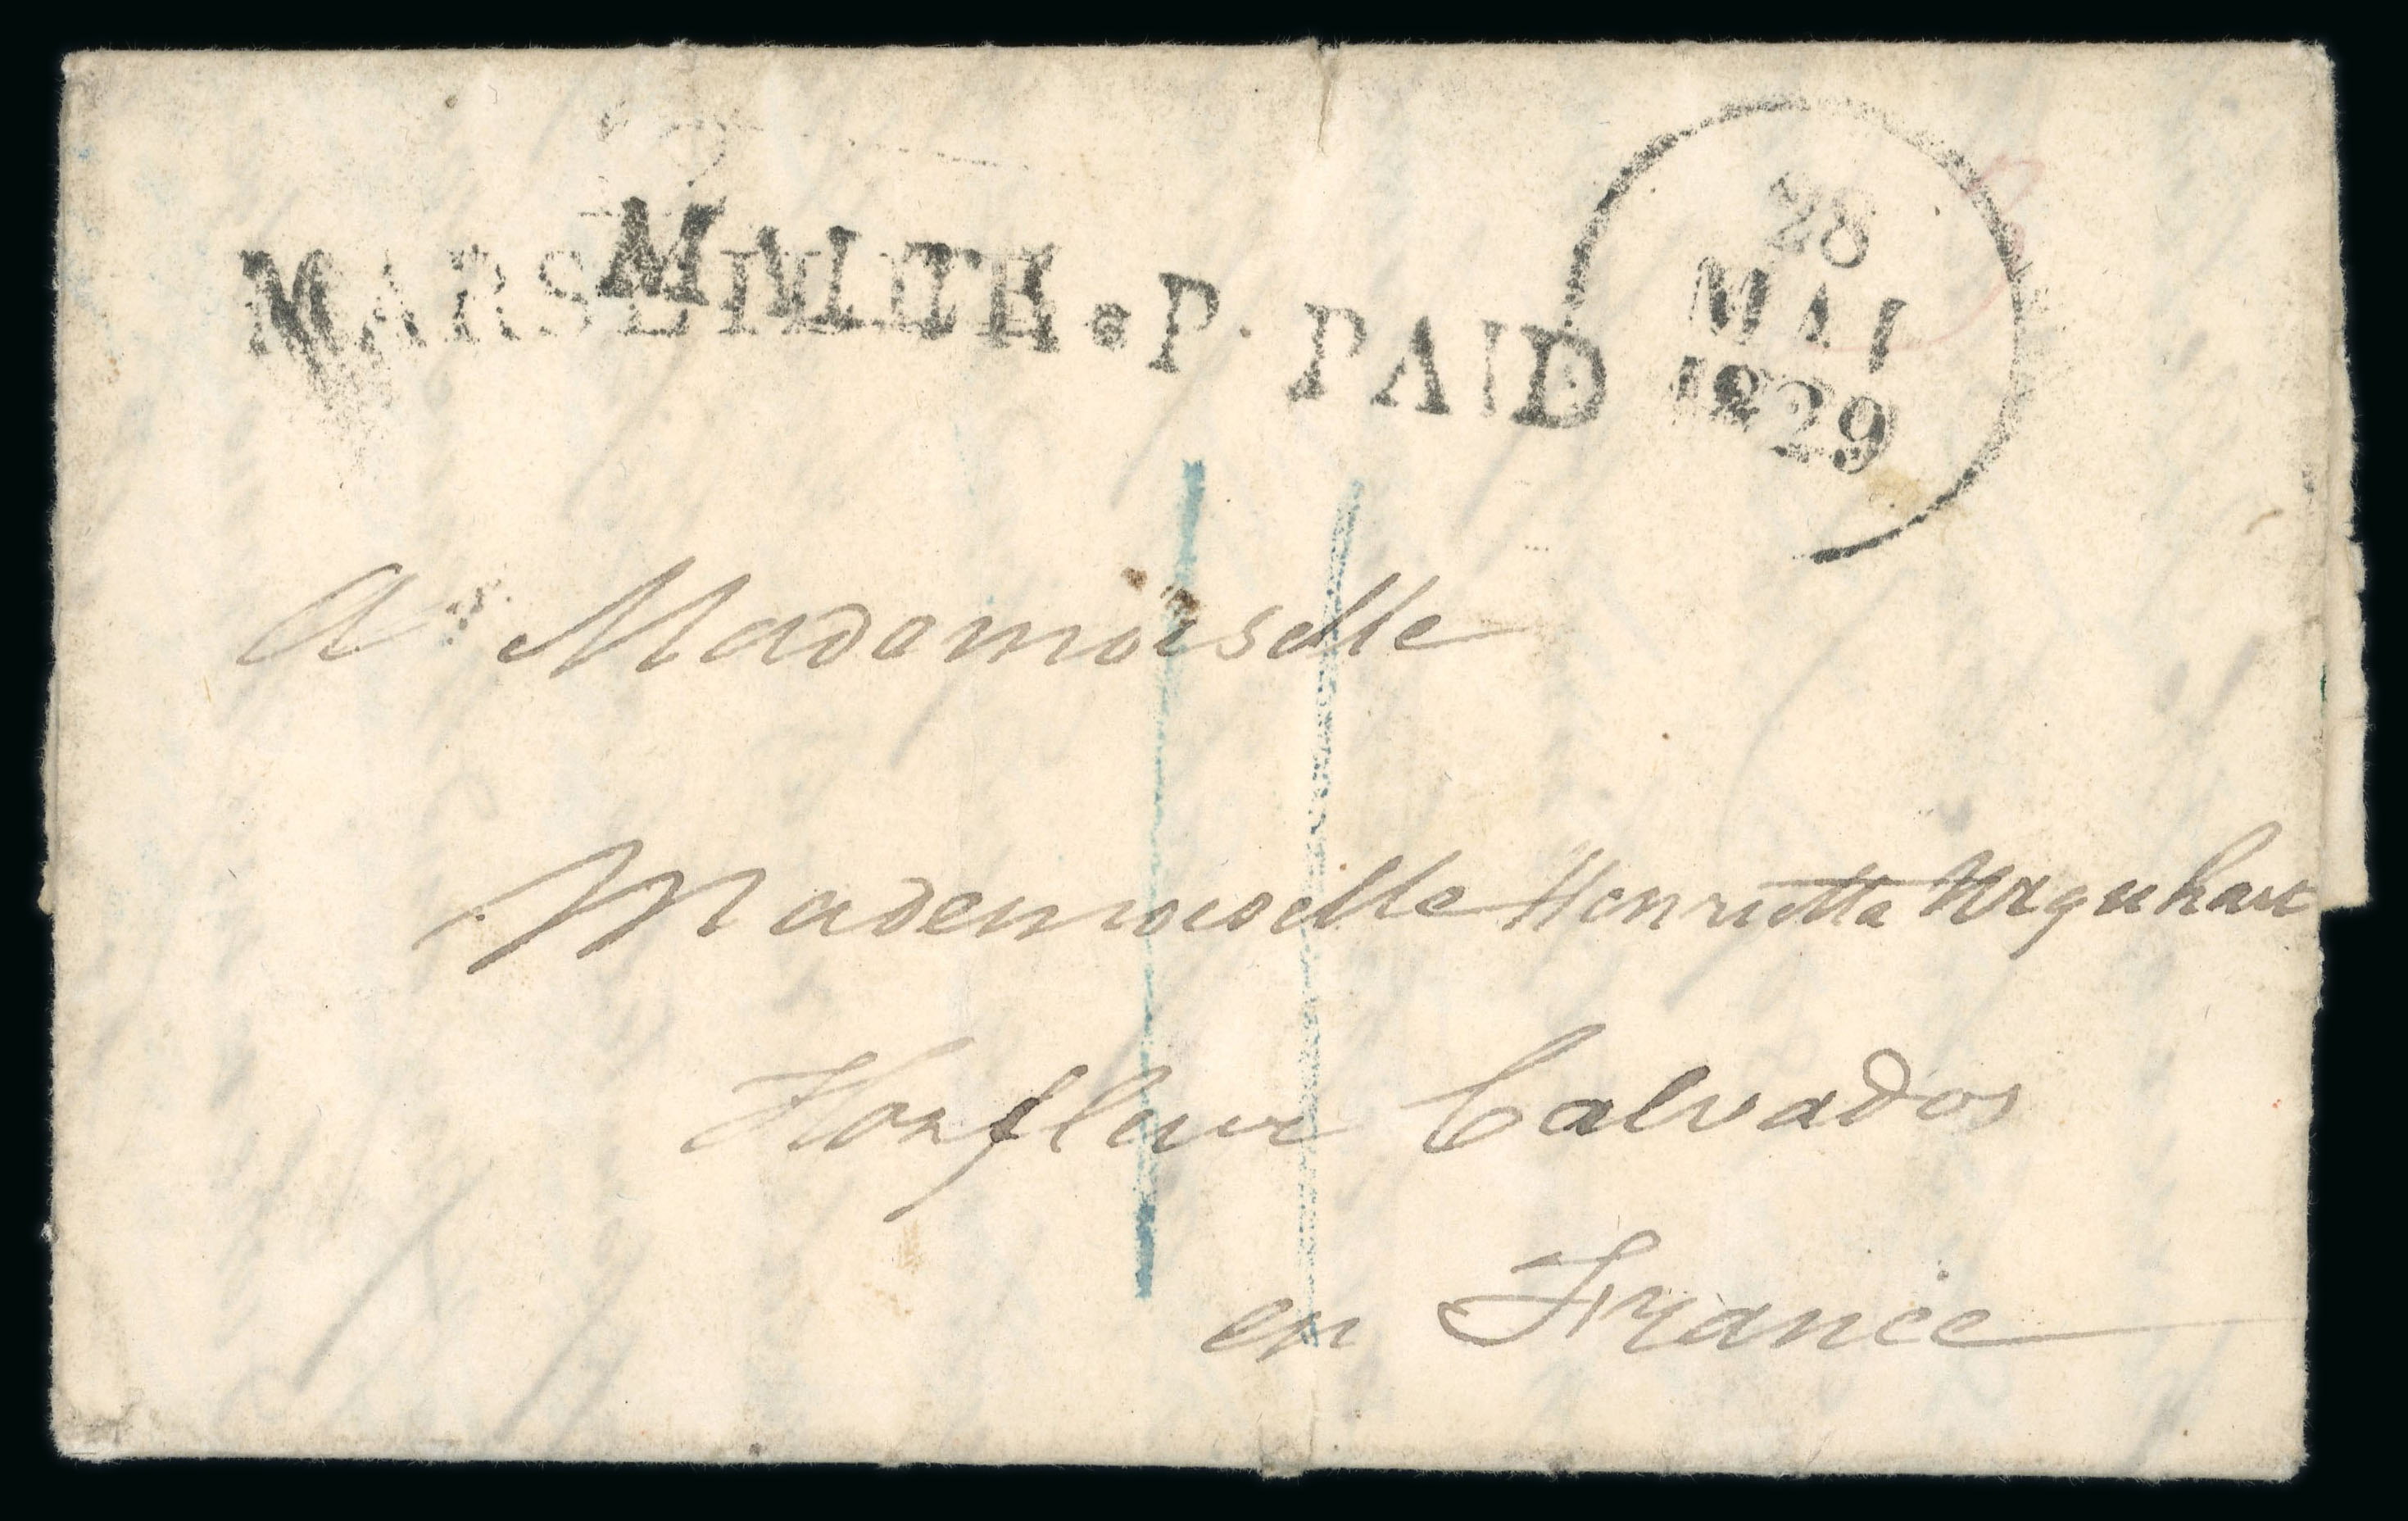 PAID
28
MAI
1829
A Mademoiselle
Mademoiselle Henrietta Urquhart
Honfleur Calvados
en France